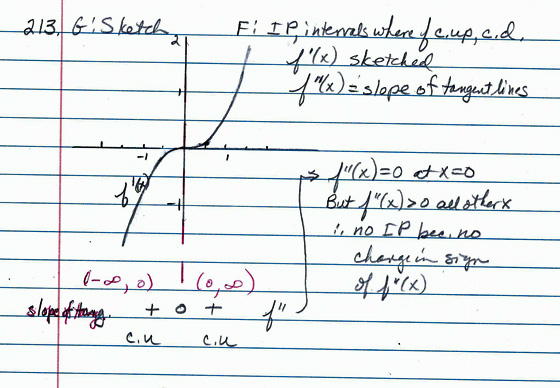 213. G: Sketch F: IP, intervals where f c.up, c.d.
2
f'(x) sketched
f''(x) = slope of tangent lines
-1 1
f'(x)
-1
f''(x)=0 at x=0
But f''(x)>0 all other x
∴ no IP bec. no
change in sign
of f''(x)
(-∞, 0) (0, ∞)
slope of tang. + 0 + f''
c.u c.u